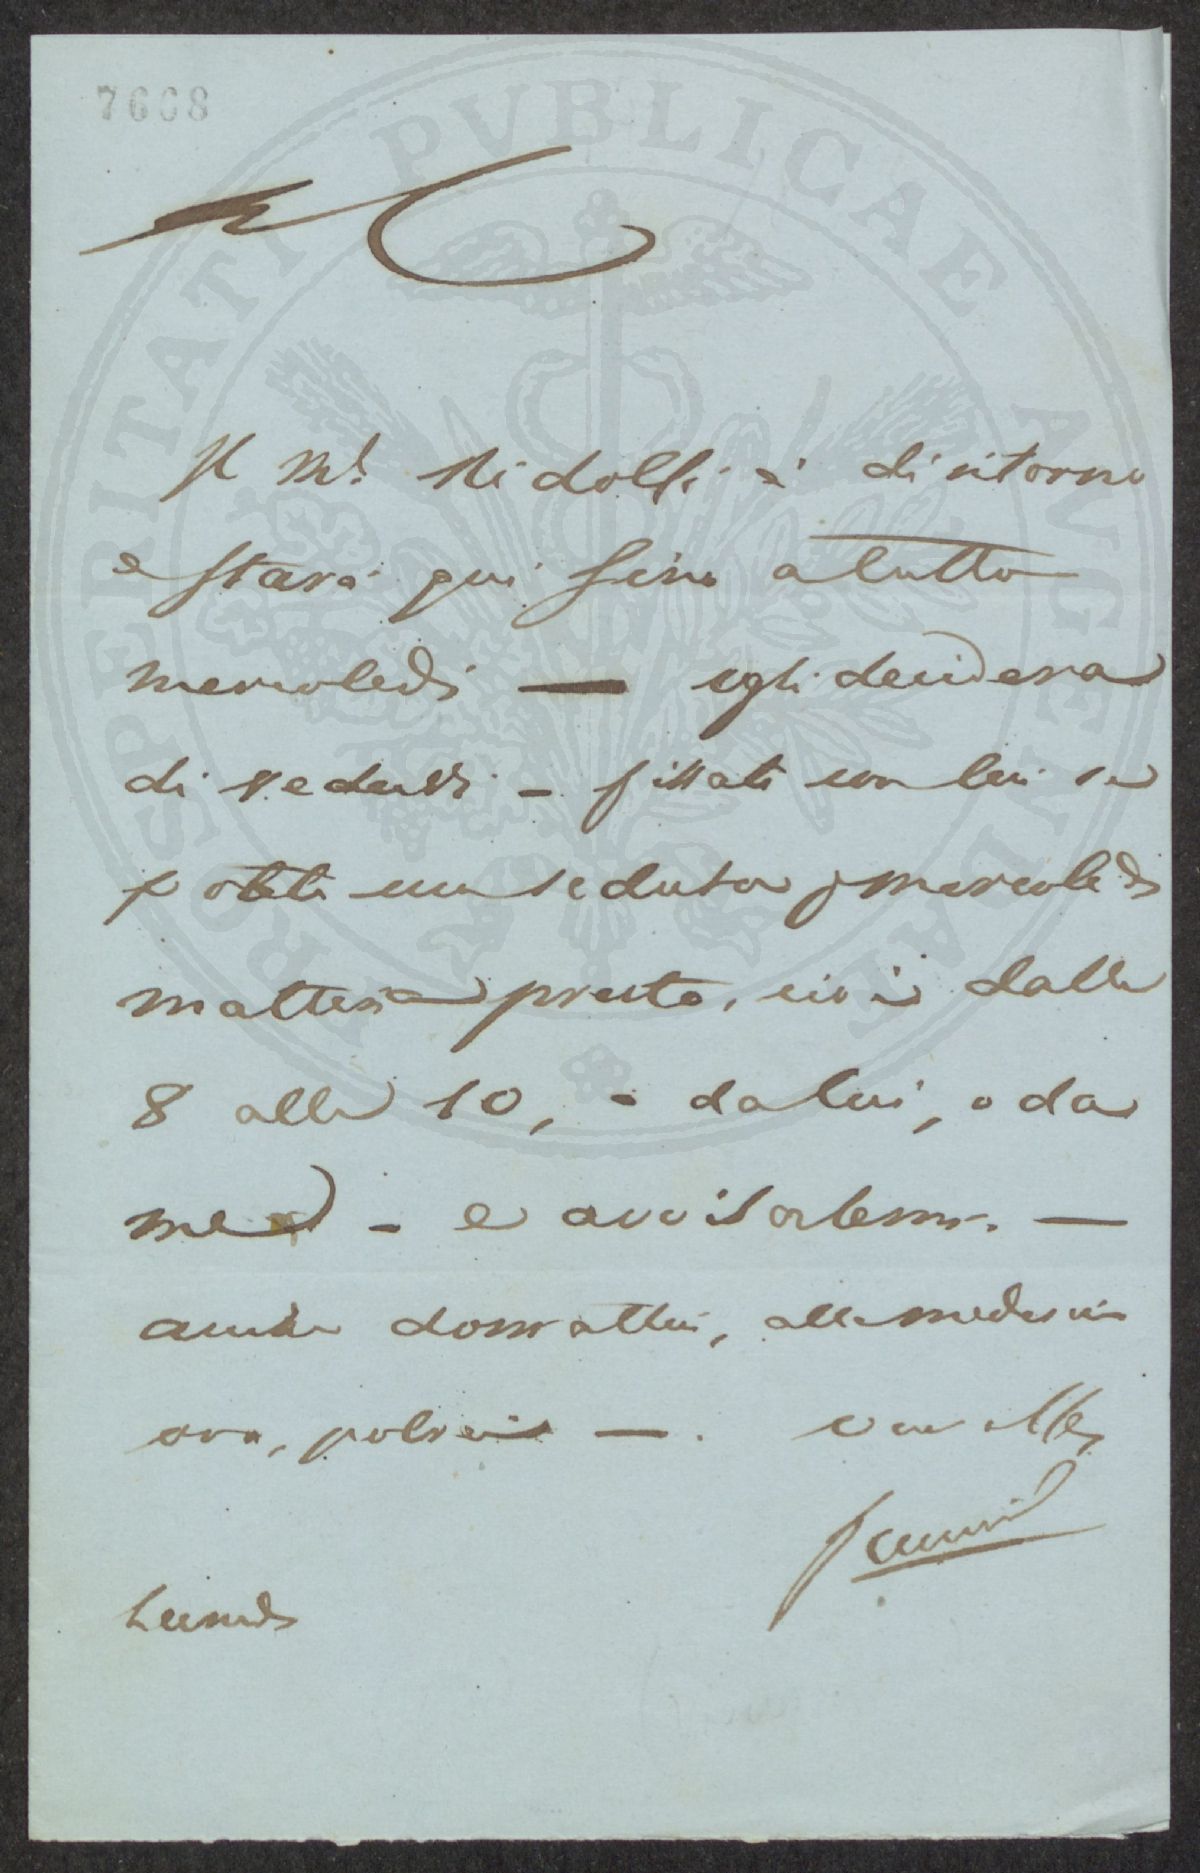 7668
PROSPERITATI PVBLICAE AVGENDAE
Il M.e Ridolfi è di ritorno
e starà qui fino a tutto
mercoledì — egli desidera
di vedervi - fissate con lui se
potete una seduta p mercoledì
mattina presto, cioè dalle
8 alle 10, o da lui, o da
me - e avvisatemi. —
anche domattina, alla medesima
ora, potrei —.
Lunedì